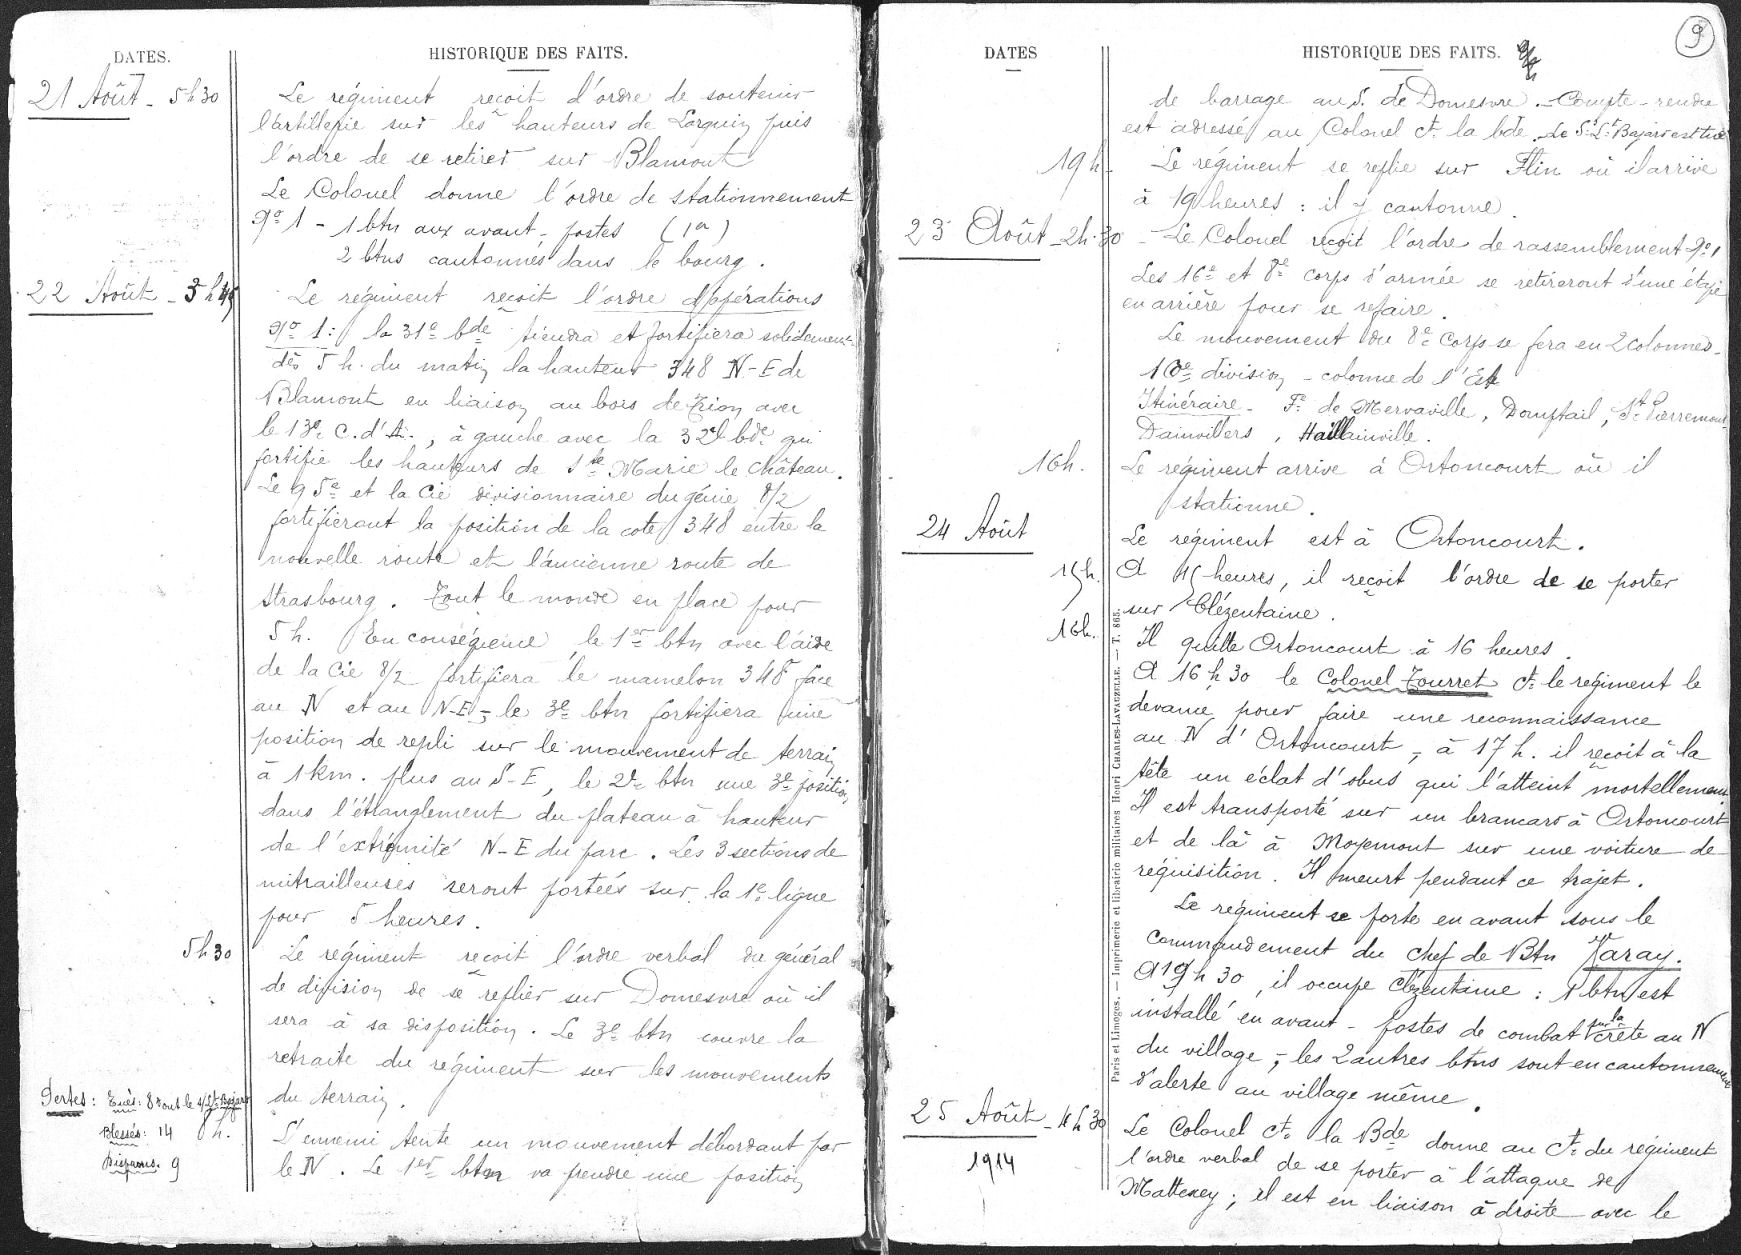 DATES.
HISTORIQUE DES FAITS.
21 Août - 5h30
Le régiment reçoit l'ordre de soutenir
l'artillerie sur les hauteurs de Lorquin puis
l'ordre de se retirer sur Blamont
Le Colonel donne l'ordre de stationnement
No 1 - 1 btn aux avant-postes (1er)
2 btns cantonnés dans le bourg.
22 Août - 3h45
Le régiment reçoit l'ordre d'opérations
No 1: la 31e bde tiendra et fortifiera solidement
dès 5 h. du matin la hauteur 348 N-E de
Blamont en liaison au bois de Trion avec
le 13e C. d'A., à gauche avec la 32e bde qui
fortifie les hauteurs de Ste Marie le château.
Le 95e et la Cie divisionnaire du génie 8/2
fortifieront la position de la cote 348 entre la
nouvelle route et l'ancienne route de
Strasbourg. Tout le monde en place pour
5 h. En conséquence, le 1er btn avec l'aide
de la Cie 8/2 fortifiera le mamelon 348 face
au N et au N-E; le 3e btn fortifiera une
position de repli sur le mouvement de terrain
à 1 km. plus au S-E, le 2e btn une 3e position
dans l'étranglement du plateau à hauteur
de l'extrémité N-E du parc. Les 3 sections de
mitrailleuses seront portées sur la 1e ligne
pour 5 heures.
5h30
Le régiment reçoit l'ordre verbal du général
de division de se replier sur Domesvre où il
sera à sa disposition. Le 3e btn couvre la
retraite du régiment sur les mouvements
du terrain.
Pertes: Tués: 8 dont le s/Lt Bajard
Blessés: 14
8 h.
Disparus. 9
L'ennemi tente un mouvement débordant par
le N. Le 1er btn va prendre une position
DATES
HISTORIQUE DES FAITS.
9
de barrage au S. de Domesvre. - Compte-rendu
est adressé au Colonel Ct la bde. Le S.Lt Bajard est tué
19 h.
Le régiment se replie sur Flin où il arrive
à 19 heures : il y cantonne.
23 Août - 2h.30
- Le Colonel reçoit l'ordre de rassemblement No 1
Les 16e et 8e corps d'armée se retireront d'une étape
en arrière pour se refaire.
Le mouvement du 8e Corps se fera en 2 colonnes.
16e division - colonne de l'Est
Itinéraire - Fe de Mervaville, Domptail, St Pierremont
Dainvillers, Haillainville.
16h.
Le régiment arrive à Ortoncourt où il
stationne.
24 Août
Le régiment est à Ortoncourt.
15h.
A 15 heures, il reçoit l'ordre de se porter
sur Clézentaine.
16h.
Il quitte Ortoncourt à 16 heures.
A 16 h 30 le Colonel Tourret Ct le régiment le
devance pour faire une reconnaissance
au N d'Ortoncourt, à 17 h. il reçoit à la
tête un éclat d'obus qui l'atteint mortellement.
Il est transporté sur un brancard à Ortoncourt
et de là à Moyemont sur une voiture de
réquisition. Il meurt pendant ce trajet.
Le régiment se porte en avant sous le
commandement du chef de Btn Karay.
A 19 h 30, il occupe Clézentaine : 1 btn est
installé en avant-postes de combat sur la crête au N
du village; les 2 autres btns sont en cantonnement
d'alerte au village même.
25 Août - 4h30
1914
Le Colonel Ct la Bde donne au Ct du régiment
l'ordre verbal de se porter à l'attaque de
Mattexey; il est en liaison à droite avec le
Paris et Limoges. — Imprimerie et librairie militaires Henri CHARLES-LAVAUZELLE. — T. 865.